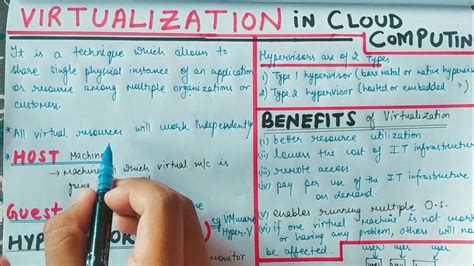 VIRTUALIZATION IN CLOUD
COMPUTIN
It is a technique which allows to
share single physical instance of an application
or resource among multiple organizations or
customers.
* All virtual resources will work independently
* HOST Machine
→ Machine on which virtual m/c is
Guest
HYP
eg VMware
Hyper-V
Hypervisors are of 2 Types
(1) Type 1 hypervisor (bare metal or native hyper
(2) Type 2 hypervisor (hosted or embedded
BENEFITS of Virtualization
(i) better resource utilization
(ii) lowers the cost of IT infrastructure
(iii) remote access
(iv) pay per use of the IT infrastructure
on demand.
(v) enables running multiple O.S.
(vi) if one virtual machine is not work
or having any problem, others will no
be affected.
user user user